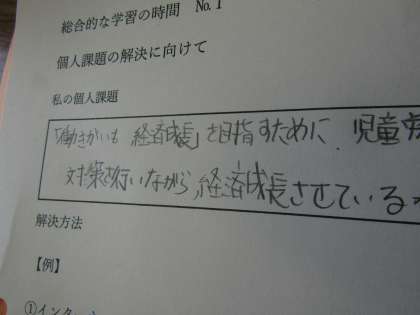 総合的な学習の時間 No.1
個人課題の解決に向けて
私の個人課題
「働きがいも 経済成長」を目指すために、児童労
対策を行いながら、経済成長させている
解決方法
【例】
①インター